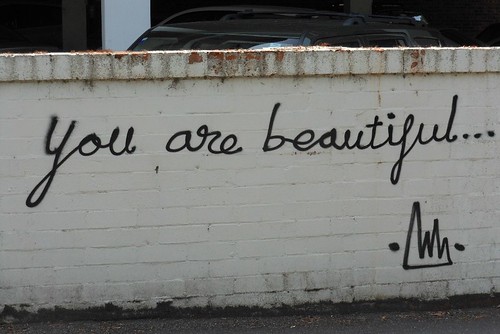 you are beautiful...